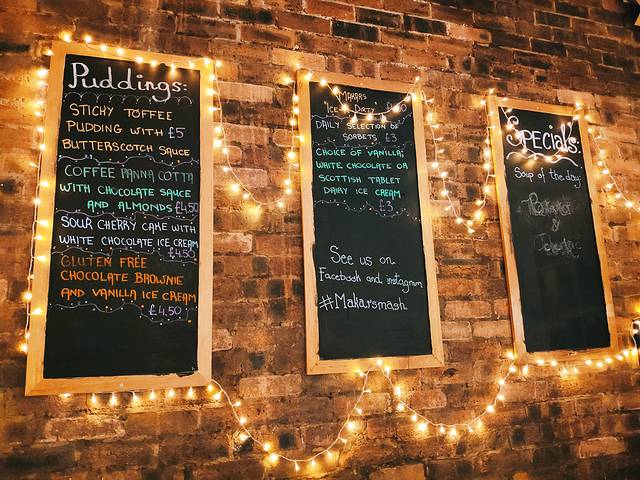 Puddings:
STICHY TOFFEE
PUDDING WITH £5
BUTTERSCOTCH SAUCE
COFFEE PANNA COTTA
WITH CHOCOLATE SAUCE
AND ALMONDS £4.50
SOUR CHERRY CAKE WITH
WHITE CHOCOLATE ICE CREAM
£4.50
GLUTEN FREE
CHOCOLATE BROWNIE
AND VANILLA ICE CREAM
£4.50
MAKARS
DAILY SELECTION OF
SORBETS £3
CHOICE OF VANILLA,
WHITE CHOCOLATE OR
SCOTTISH TABLET
DAIRY ICE CREAM
£3
See us on
Facebook and instagram
#Makarsmash
Specials:
Soup of the day:
&